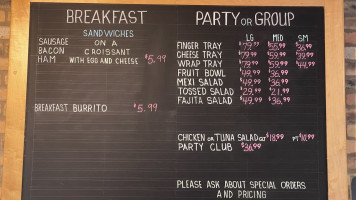 BREAKFAST
SANDWICHES
SAUSAGE ON A
BACON CROISSANT
HAM WITH EGG AND CHEESE $5.99
BREAKFAST BURRITO $5.99
PARTY OR GROUP
LG MED SM
FINGER TRAY $79.99 $55.99 $36.99
CHEESE TRAY $79.99 $59.99 $39.99
WRAP TRAY $79.99 $59.99 $44.99
FRUIT BOWL $49.99 $36.99
MEXI SALAD $49.99 $36.99
TOSSED SALAD $29.99 $21.99
FAJITA SALAD $49.99 $36.99
CHICKEN OR TUNA SALAD QT $18.99 PT $10.99
PARTY CLUB $36.99
PLEASE ASK ABOUT SPECIAL ORDERS
AND PRICING